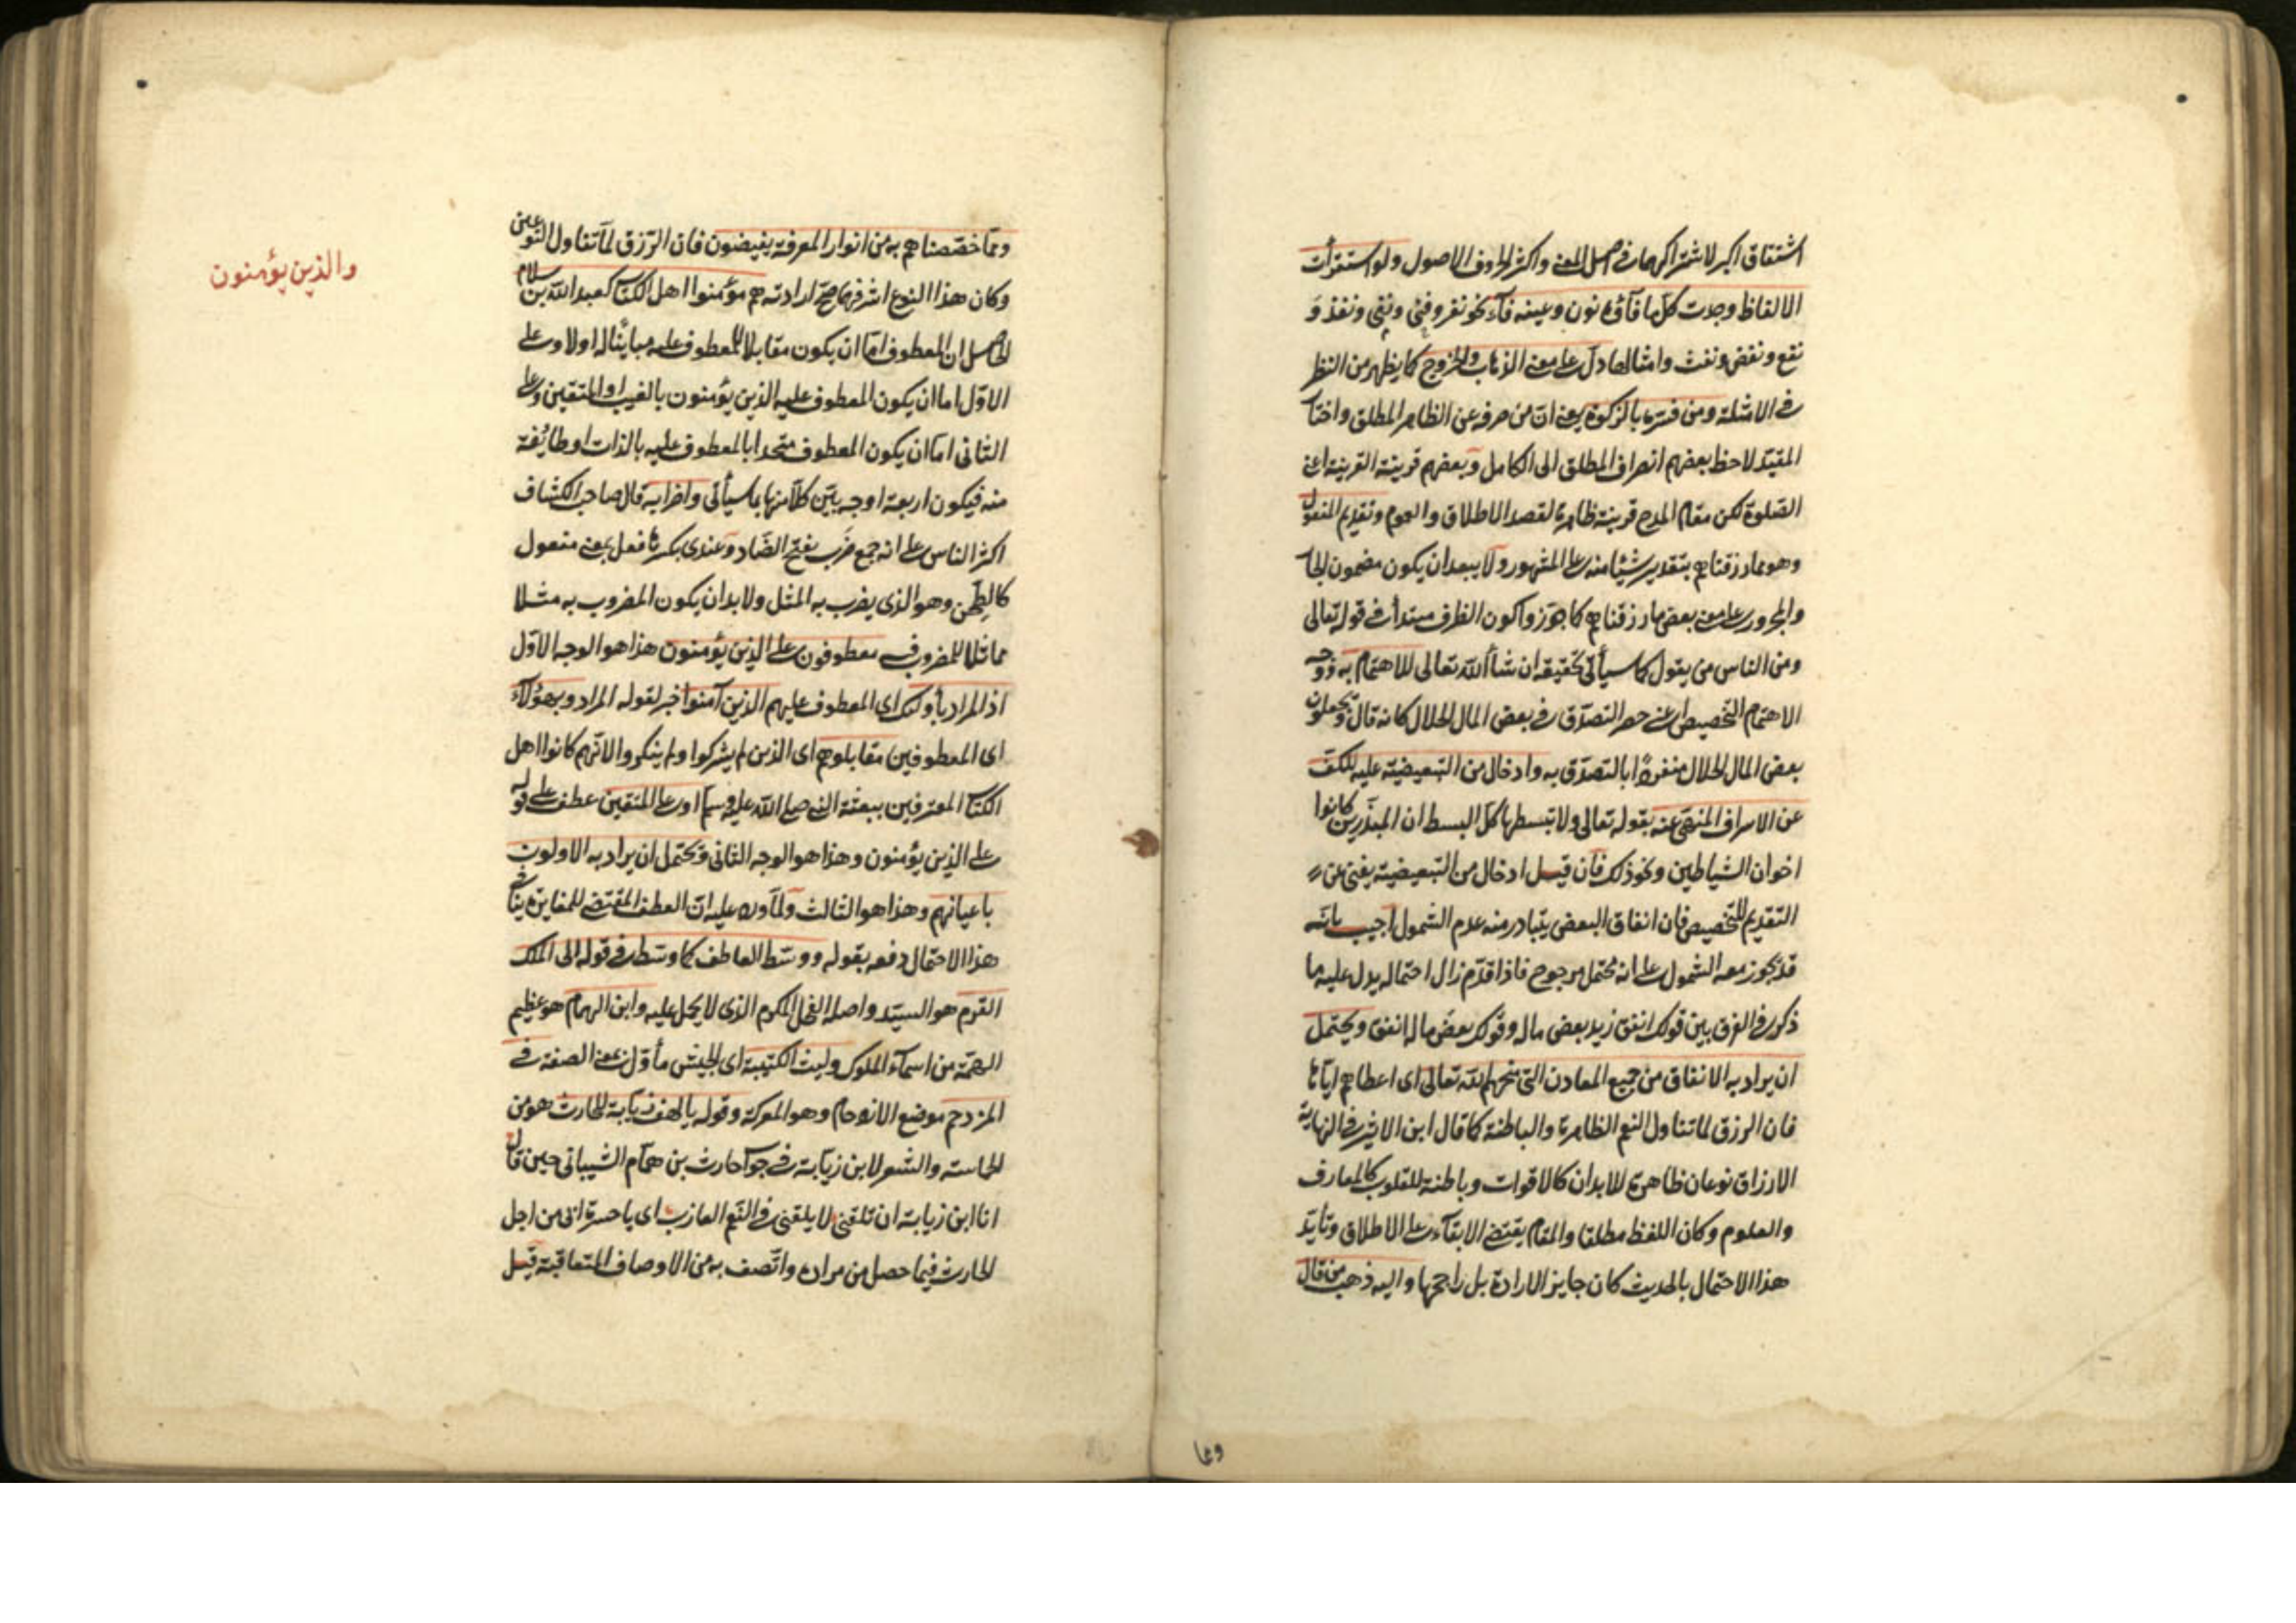 اشتقاق اكبر لاشتراكهما في اصل المعنى واكثر الحروف الاصول ولو استقرأت
الالفاظ وجدت كل ما فآؤه نون وعينه فآء نحو نفر ونفى ونفذ و
نفع ونفض ونفث وامثالها دل على معنى الذهاب والخروج كما يظهر من النظر
في الامثلة ومن فسره بالزكوة يعنى ان من صرفه عن الظاهر المطلق واختا
المقيد لاحظ بعضهم انصراف المطلق الى الكامل وبعضهم قرينة القرينة اعنى
الصلوة لكن مقام المدح قرينة ظاهرة لقصد الاطلاق والعموم وتقديم المفعول
وهو مما رزقناهم بتقدير شيئا منه على المشهور ولا يبعد ان يكون مضمون الجا
والمجرور على معنى بعض ما رزقناهم كما جوزوا كون الظرف مبتدأ في قوله تعالى
ومن الناس من يقول كما سيأتى تحقيقه ان شاء الله تعالى للاهتمام به ووجه
الاهتمام التخصيص اعنى حصر التصدق في بعض المال الحلال كانه قال ويجعلون
بعض المال الحلال منفردا بالتصدق به وادخال من التبعيضية عليه للكف
عن الاسراف المنهى عنه بقوله تعالى ولا تبسطها كل البسط ان المبذرين كانوا
اخوان الشياطين ونحو ذلك فان قيل ادخال من التبعيضية يغنى عن
التقديم للتخصيص فان انفاق البعض يتبادر منه عدم الشمول اجيب بانه
قد يجوز معه الشمول على انه محتمل مرجوح فاذا قدم زال احتماله يدل عليه ما
ذكر في الفرق بين قولك انفق زيد بعض ماله وقولك بعض ماله انفق ويحتمل
ان يراد به الانفاق من جميع المعادن التى منحهم الله تعالى اى اعطاهم اياها
فان الرزق لما تناول النعم الظاهرة والباطنة كما قال ابن الاثير في النهاية
الارزاق نوعان ظاهرة للابدان كالاقوات وباطنة للقلوب كالمعارف
والعلوم وكان اللفظ مطلقا والمقام يقتضى الابقآء على الاطلاق وتأيد
هذا الاحتمال بالحديث كان جايز الارادة بل راجحها واليه ذهب من قال
ومما
ومما خصصناهم به من انوار المعرفة يفيضون فان الرزق لما تناول النوعين
وكان هذا النوع اشرفهما صح ارادته هم مؤمنوا اهل الكتاب كعبد الله بن سلام
الحاصل ان المعطوف اما ان يكون مقابلا للمعطوف عليه مباينا له اولا وعلى
الاول اما ان يكون المعطوف عليه الذين يؤمنون بالغيب او المتقين وعلى
الثانى اما ان يكون المعطوف متحدا بالمعطوف عليه بالذات او طائفة
منه فيكون اربعة اوجه بين كلا منها بما سيأتى واضرابه قال صاحب الكشاف
اكثر الناس على انه جمع ضرب بفتح الضاد وعندى بكسرها فعل بمعنى مفعول
كالطحن وهو الذى يضرب به المثل ولا بد ان يكون المضروب به مثلا
مماثلا للمضروب فيه معطوفون على الذين يؤمنون هذا هو الوجه الاول
اذ المراد باولئك اى المعطوف عليهم الذين آمنوا خبر لقوله المراد وبهؤلآء
اى المعطوفين مقابلوهم اى الذين لم يشركوا ولم ينكروا لانهم كانوا اهل
الكتاب المعترفين ببعثة النبى صلى الله عليه وسلم او على المتقين عطف على قوله
على الذين يؤمنون وهذا هو الوجه الثانى ويحتمل ان يراد به الاولون
باعيانهم وهذا هو الثالث ولما ورد عليه ان العطف المقتضى للمغايرة ينافى
هذا الاحتمال دفعه بقوله ووسط العاطف كما وسط في قوله الى الملك
القرم هو السيد واصله الفحل المكرم الذى لا يحمل عليه وابن الهمام هو عظيم
الهمة من اسمآء الملوك وليث الكتيبة اى الجيش مأول بمعنى الصفة في
المزدحم موضع الازدحام وهو المعركة وقوله يا لهف زيابة للحارث هو من
الحماسة والشعر لابن زيابة في جواب حارث بن همام الشيبانى حين قال
انا ابن زيابة ان تلقنى لا يلقنى في النعم العازب اى يا حسرة ابى من اجل
الحارث فيما حصل من مراده واتصف به من الاوصاف المتعاقبة قيل
والذين يؤمنون